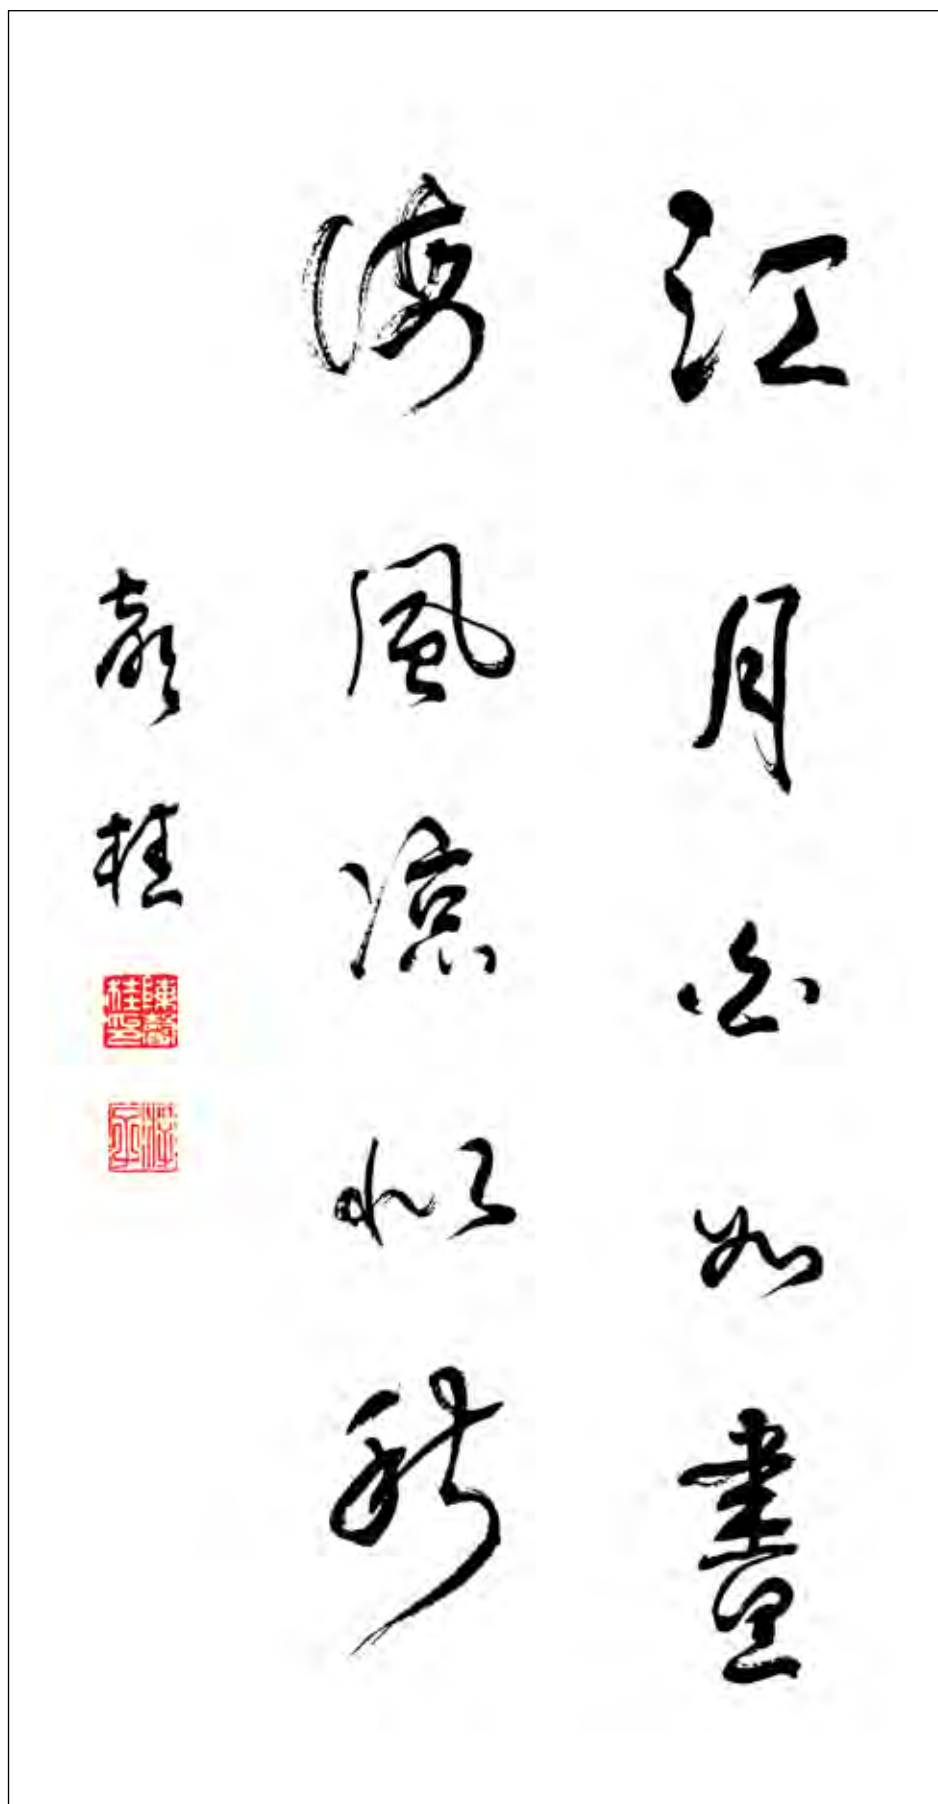 江月白如晝
海風涼似秋
馨桂
陳馨桂印